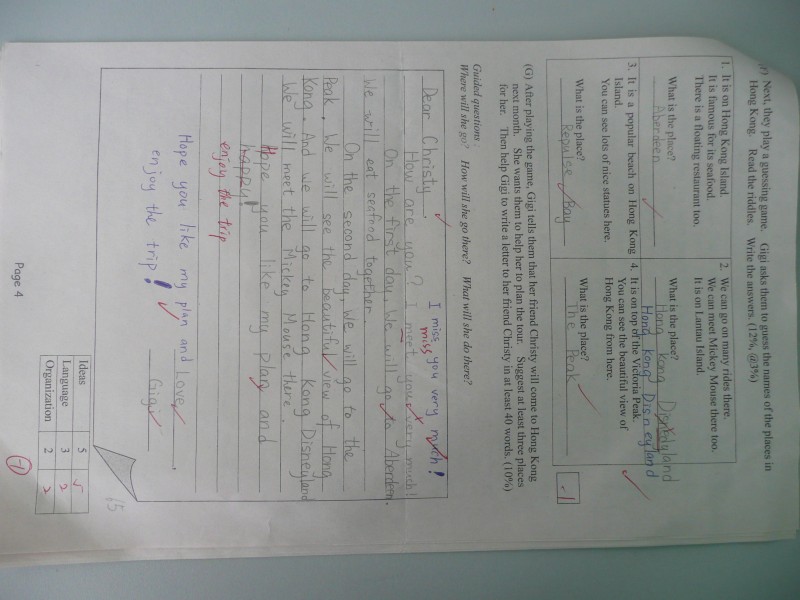 (F) Next, they play a guessing game. Gigi asks them to guess the names of the places in
Hong Kong. Read the riddles. Write the answers. (12% @3%)
1. It is on Hong Kong Island.
It is famous for its seafood.
There is a floating restaurant too.
What is the place?
Aberdeen
2. We can go on many rides there.
We can meet Mickey Mouse there too.
It is on Lantau Island.
What is the place?
Hong Kong Disneyland
Hong Kong Disneyland
3. It is a popular beach on Hong Kong
Island.
You can see lots of nice statues here.
What is the place?
Repulse Bay
4. It is on top of the Victoria Peak.
You can see the beautiful view of
Hong Kong from here.
What is the place?
The Peak
-1
(G) After playing the game, Gigi tells them that her friend Christy will come to Hong Kong
next month. She wants them to help her to plan the tour. Suggest at least three places
for her. Then help Gigi to write a letter to her friend Christy in at least 40 words. (10%)
Guided questions :
Where will she go? How will she go there? What will she do there?
I miss you very much!
Dear Christy,
miss
How are you? I meet you very much!
On the first day, We will go to Aberdeen.
We will eat seafood together.
On the second day, We will go to the
Peak. We will see the beautiful view of Hong
Kong. And we will go to Hong Kong Disneyland
We will meet the Mickey Mouse there.
Hope you like my plan and
happy!
enjoy the trip
Hope you like my plan and
enjoy the trip!
Love,
Gigi
65
Ideas 5
Language 3 2
Organization 2 2
Page 4